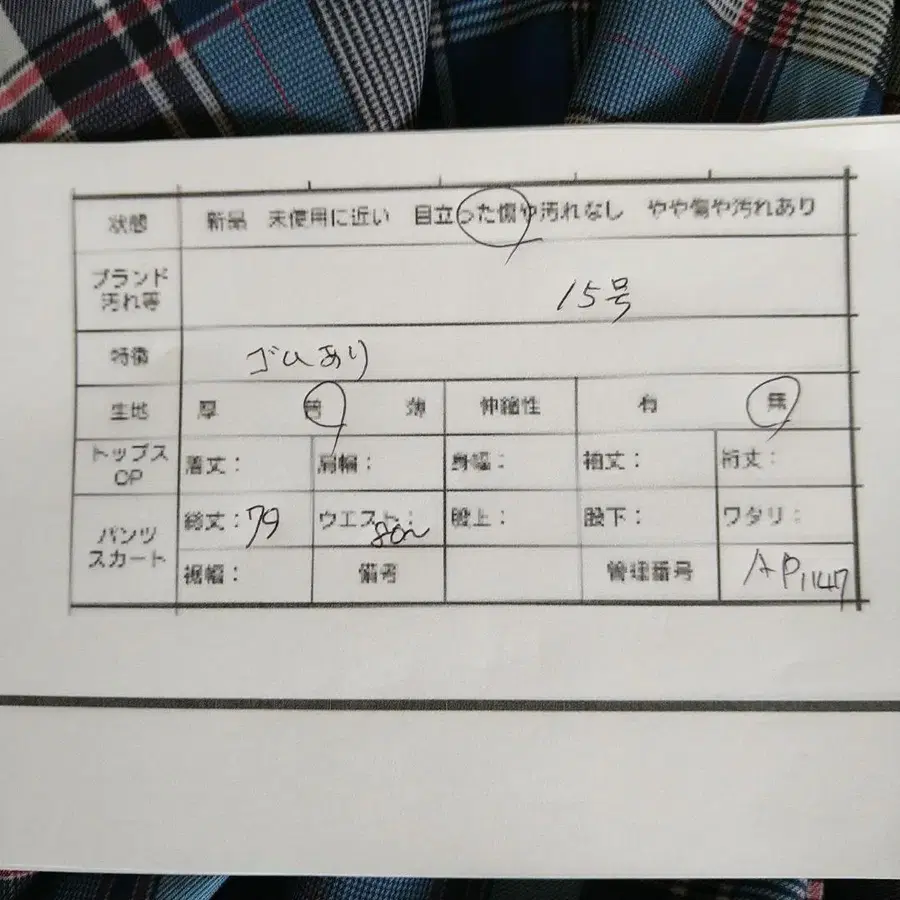 状態 新品 未使用に近い 目立った傷や汚れなし やや傷や汚れあり
ブランド
汚れ等
15号
特徴 ゴムあり
生地 厚 普 薄 伸縮性 有 無
トップス
OP
着丈： 肩幅： 身幅： 袖丈： 裄丈：
パンツ
スカート
総丈：79 ウエスト：80〜 股上： 股下： ワタリ：
裾幅： 備考 管理番号 AP1147